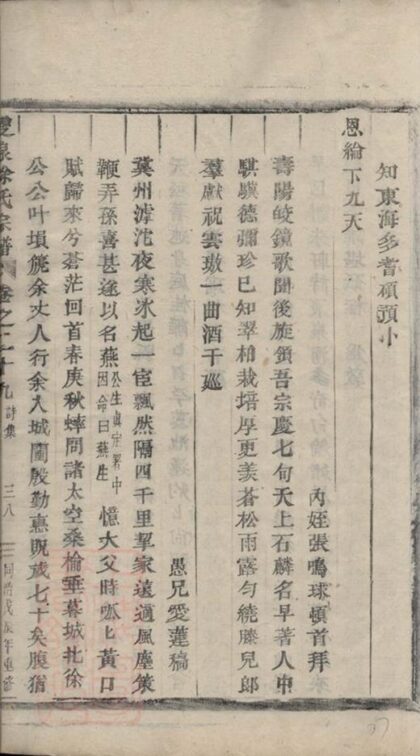 知東海多耆碩頭小
恩綸下九天
內姪張鳴球頓首拜
壽陽皎鏡歌聞後旋領吾宗慶七旬天上石麟名早著人中
騏驥德彌珍已知翠柏栽培厚更羨蒼松雨露勻繞膝兒郎
羣獻祝雲璈一曲酒千巡
愚兄愛蓮稿
冀州滹沱夜寒冰起一宦飄然隔四千里挈家遠適風塵策
鞭弄孫喜甚遂以名燕公生眞定署中因命曰燕生憶大父時呱呱黃口
賦歸來兮蒼茫回首春庚秋蟀問諸太空桑榆垂暮城北徐
公公叶塤篪余丈人行余入城闉殷勤惠貺歲七十矣腹猶
雙泉徐氏宗譜 卷之二十九 詩集 三八 同治戊辰年重修